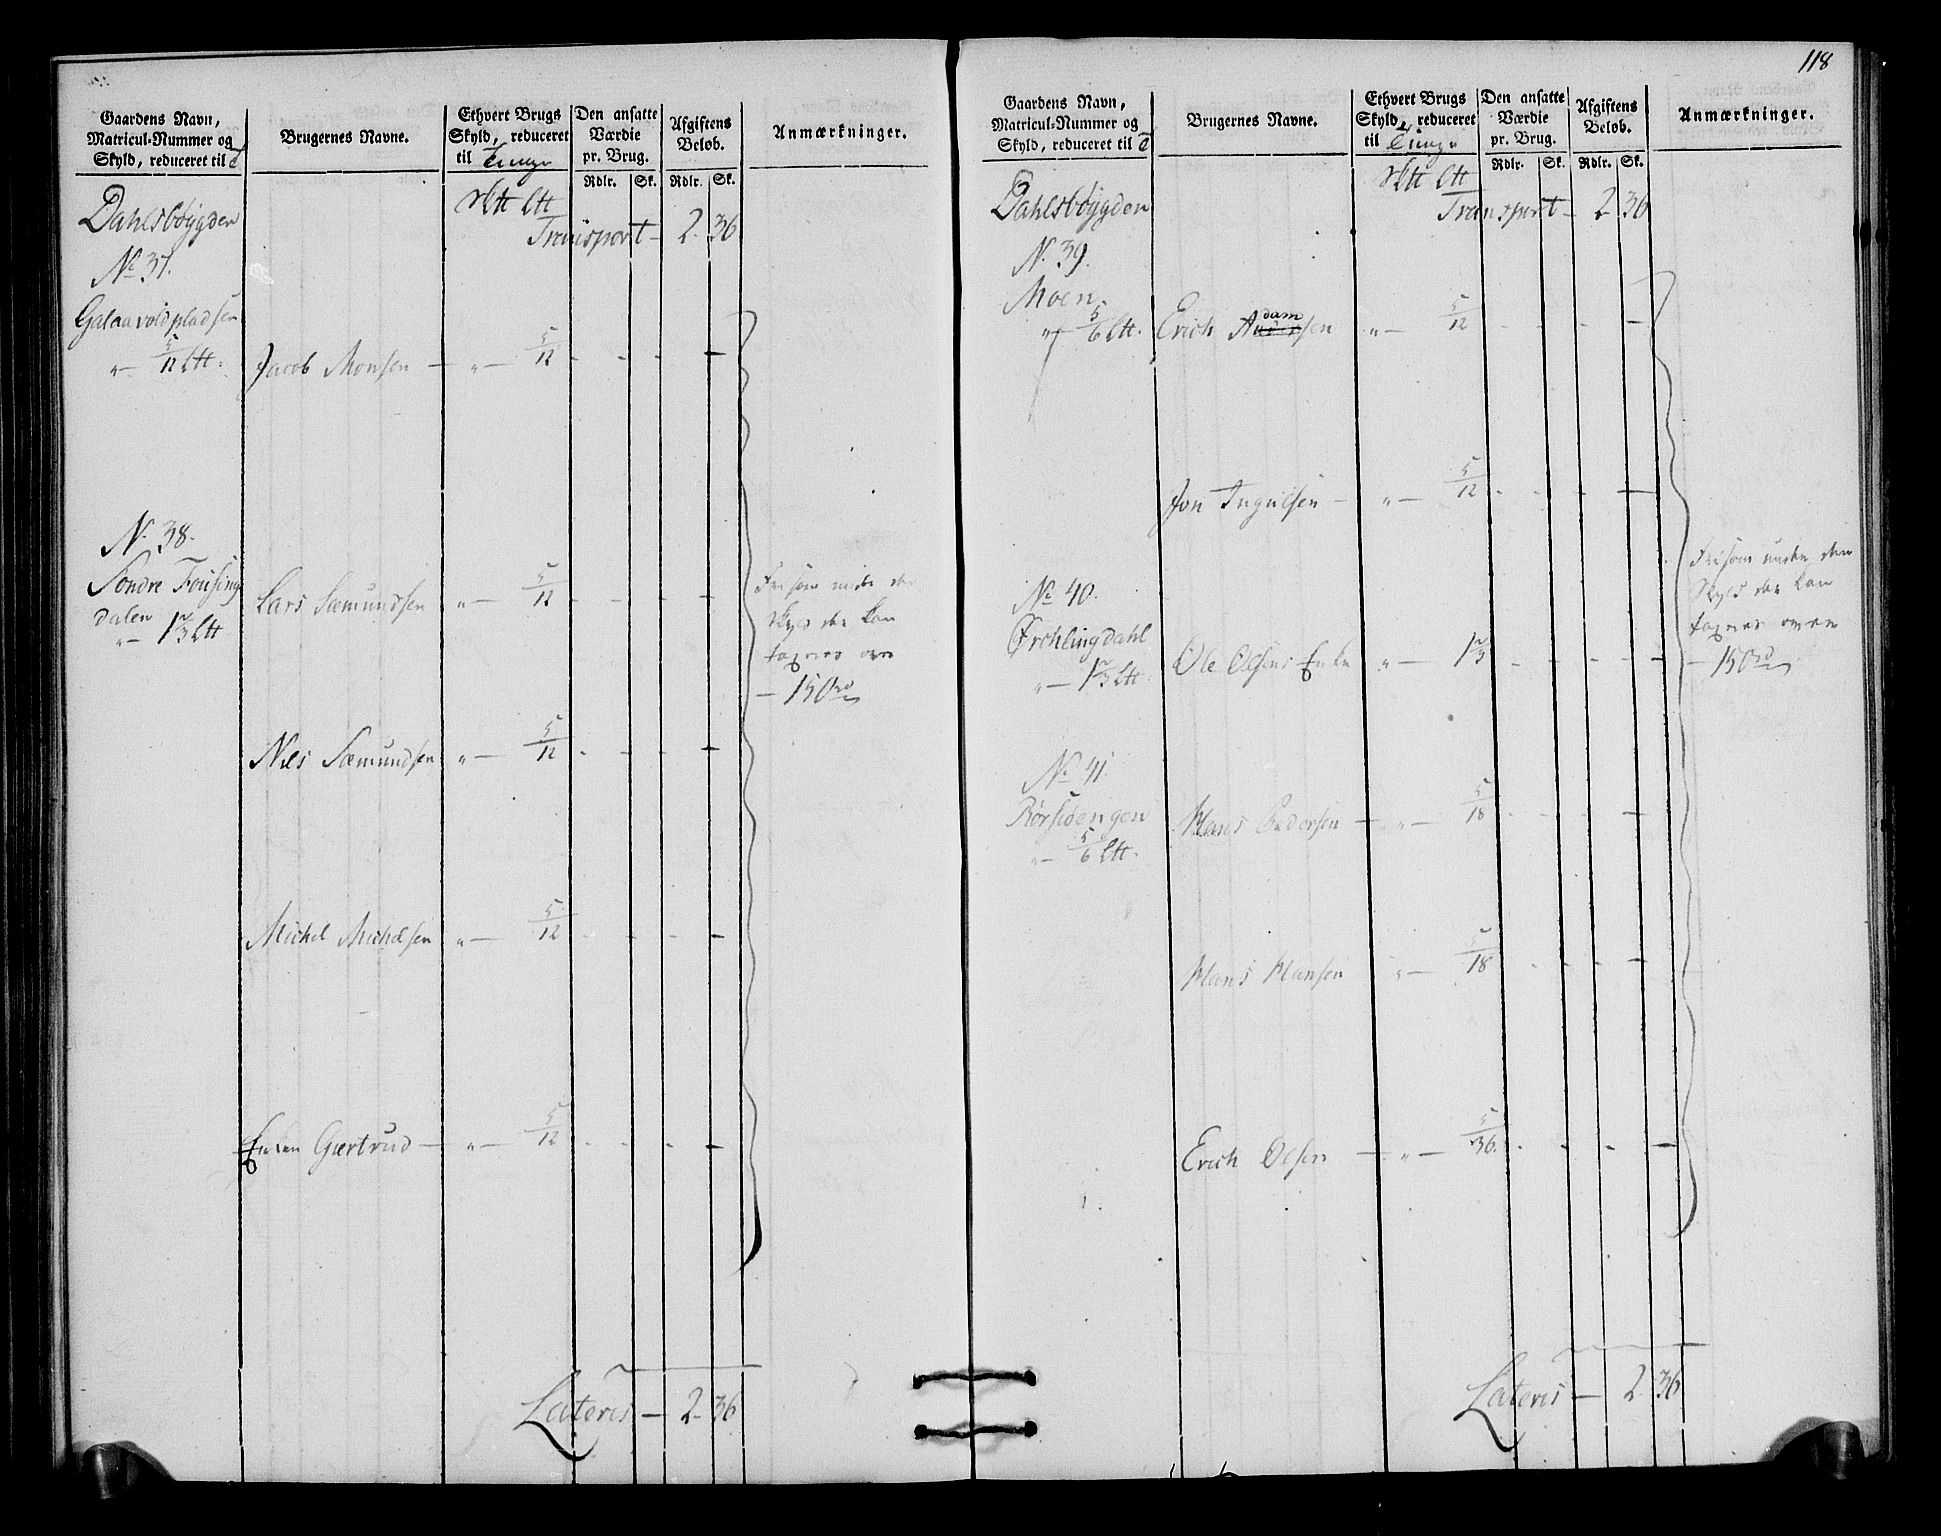 118
Gaardens Navn,
Matricul-Nummer og
Skyld, reduceret til
Brugernes Navne.
Ethvert Brugs
Skyld, reduceret
til Tunge
Den ansatte
Værdie
pr. Brug.
Rdlr. Sk.
Afgiftens
Beløb.
Rdlr. Sk.
Anmærkninger.
Dahlsbøygden
Transport - 2. 36
No 37.
Galaavoldpladsen
„ — 5/12 Ltt.
Jacob Monsen — „ — 5/12 - - - -
N. 38.
Søndre
dalen
„ — 1 2/3 Ltt
Lars Sæmundsen „ — 5/12 - - - -
Fri som under den
Skyld der kan
taxeres over
— 150 rd
Nils Sæmundsen „ — 5/12 - - - -
Michel Michelsen „ — 5/12 - - - -
Enken Giertrud — „ — 5/12 - - - -
Lateris — 2. 36
Gaardens Navn,
Matricul-Nummer og
Skyld, reduceret til
Brugernes Navne.
Ethvert Brugs
Skyld, reduceret
til Tunge
Den ansatte
Værdie
pr. Brug.
Rdlr. Sk.
Afgiftens
Beløb.
Rdlr. Sk.
Anmærkninger.
Dahlsbøygden
Transport - 2 36
N. 39.
Moen.
„ — 5/6 Ltt.
Erich Adamsen „ — 5/12 - - - -
Jon Ingulsen — „ — 5/12 - - - -
No 40.
Grøhlingdahl
„ — 1 2/3 Ltt.
Ole Olsens Enke „ — 1 2/3 - - - -
Fri som under den
Skyld der kan
taxeres over
— 150 rd
No 41.
Rørsidengen
„ — 5/6 Ltt.
Hans Pedersen — „ — 5/18 - - - -
Hans Hansen „ — 5/18 - - - -
Erich Olsen — „ — 5/36. - - - -
Lateris — 2 36